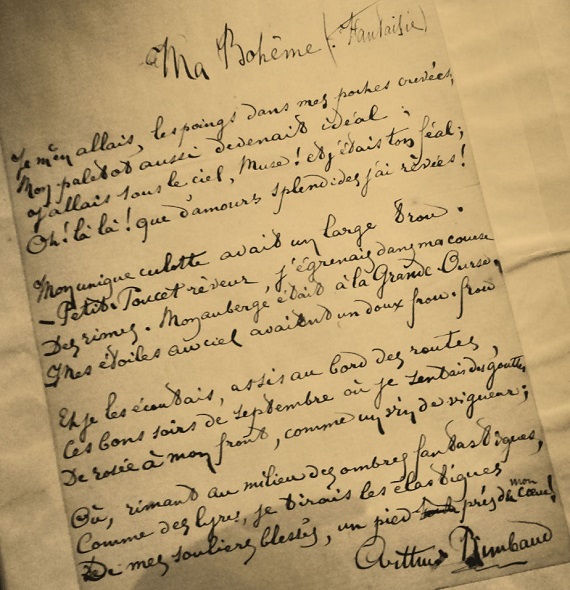 Ma Bohême (Fantaisie)
Je m'en allais, les poings dans mes poches crevées;
Mon paletot aussi devenait idéal;
J'allais sous le ciel, Muse! et j'étais ton féal;
Oh! là là! que d'amours splendides j'ai rêvées!
Mon unique culotte avait un large trou.
– Petit-Poucet rêveur, j'égrenais dans ma course
Des rimes. Mon auberge était à la Grande-Ourse.
Mes étoiles au ciel avaient un doux frou-frou
Et je les écoutais, assis au bord des routes,
Ces bons soirs de septembre où je sentais des gouttes
De rosée à mon front, comme un vin de vigueur;
Où, rimant au milieu des ombres fantastiques,
Comme des lyres, je tirais les élastiques
De mes souliers blessés, un pied près de mon coeur!
Arthur Rimbaud